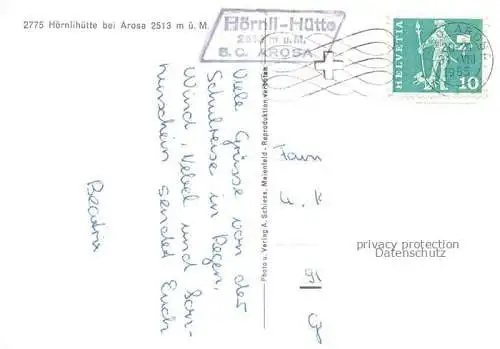 2775 Hörnlihütte bei Arosa 2513 m ü. M.
Hörnli-Hütte
2513 m ü. M.
S. C. AROSA
HELVETIA
10
AROSA
VIII
Viele Grüsse von der
Schulreise in Regen,
Wind, Nebel und Son-
nenschein sendet Euch
Beatrice
Photo u. Verlag A. Schiess, Maienfeld - Reproduktion verboten
Fam
K
91
privacy protection
Datenschutz